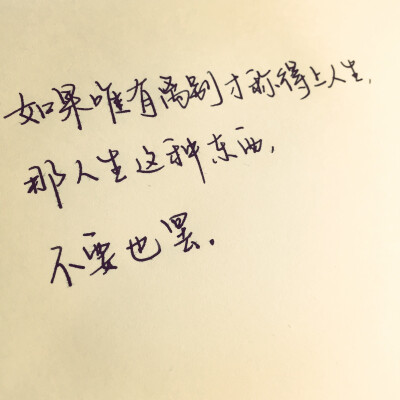 如果唯有离别才称得上人生，
那人生这种东西，
不要也罢。